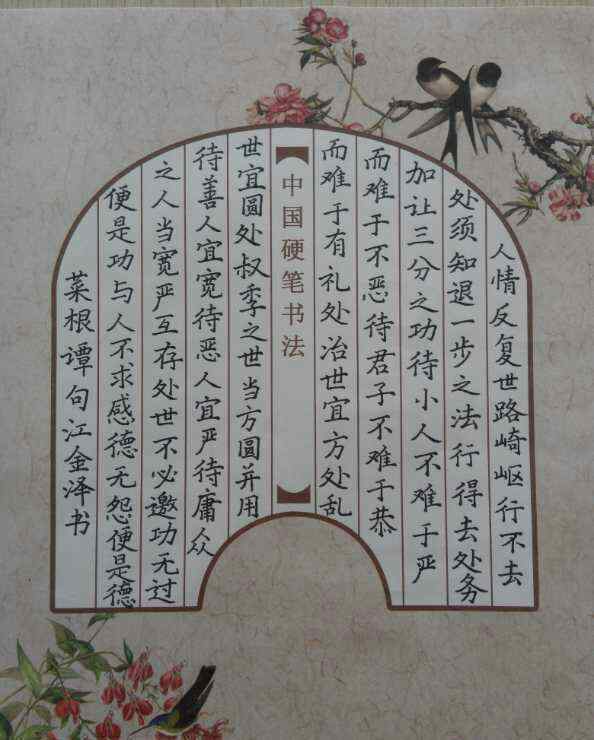 人情反复世路崎岖行不去
处须知退一步之法行得去处务
加让三分之功待小人不难于严
而难于不恶待君子不难于恭
而难于有礼处治世宜方处乱
中国硬笔书法
世宜圆处叔季之世当方圆并用
待善人宜宽待恶人宜严待庸众
之人当宽严互存处世不必邀功无过
便是功与人不求感德无怨便是德
菜根谭句江金泽书